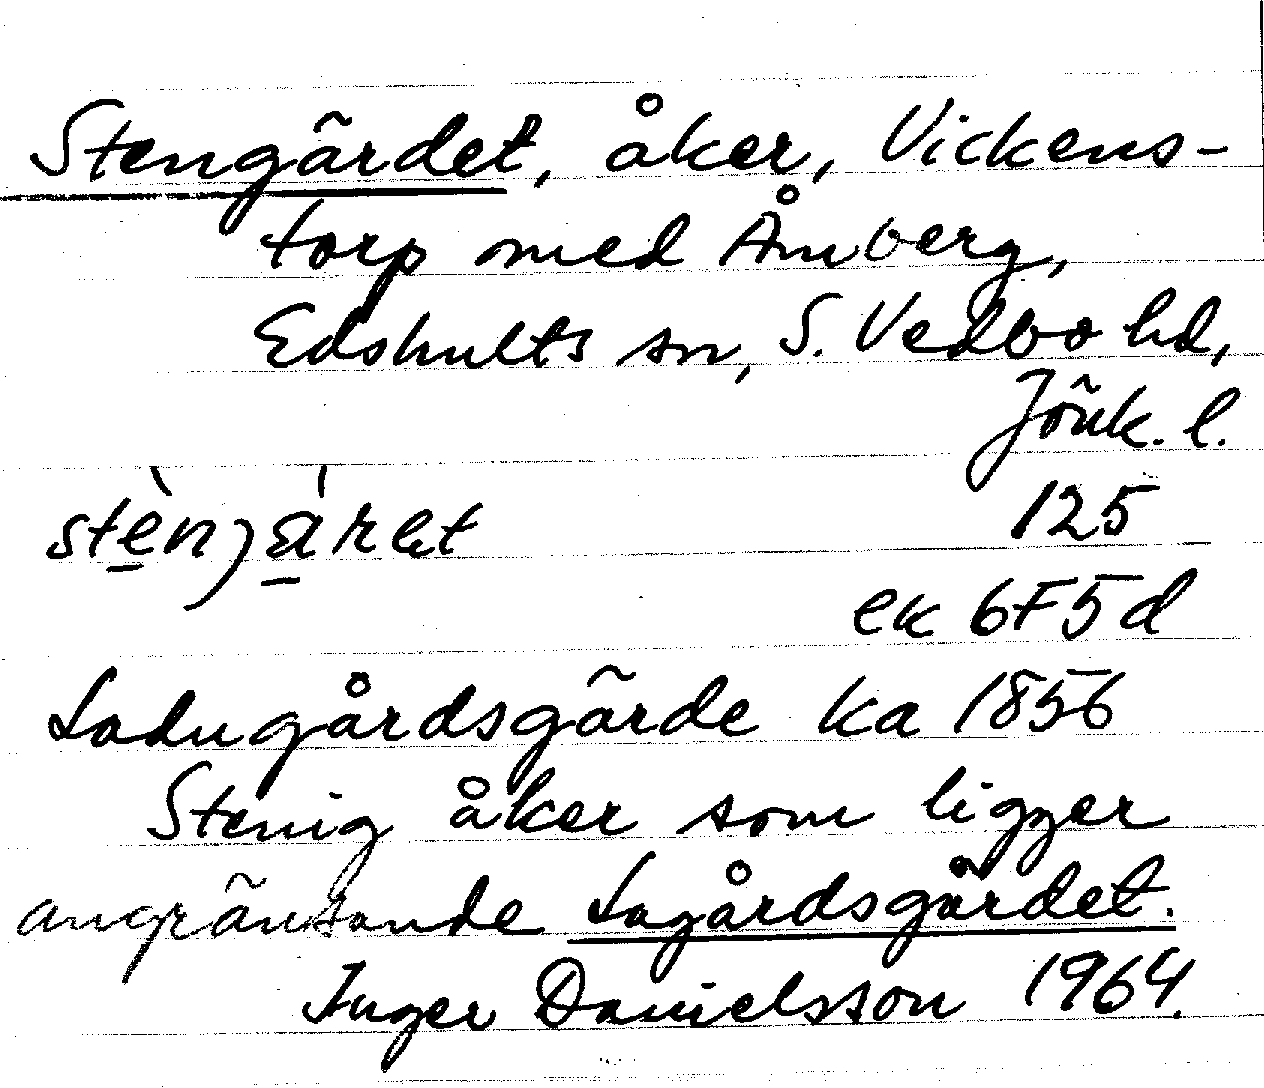 Stengärdet, åker, Vickens-
torp med Åmberg,
Edshults sn, S. Vedbo hd,
Jönk. l.
stènjàret 125
ek 6F5d
Ladugårdsgärde ka 1856
Stenig åker som ligger
angränsande Lagårdsgärdet.
Inger Danielsson 1964.